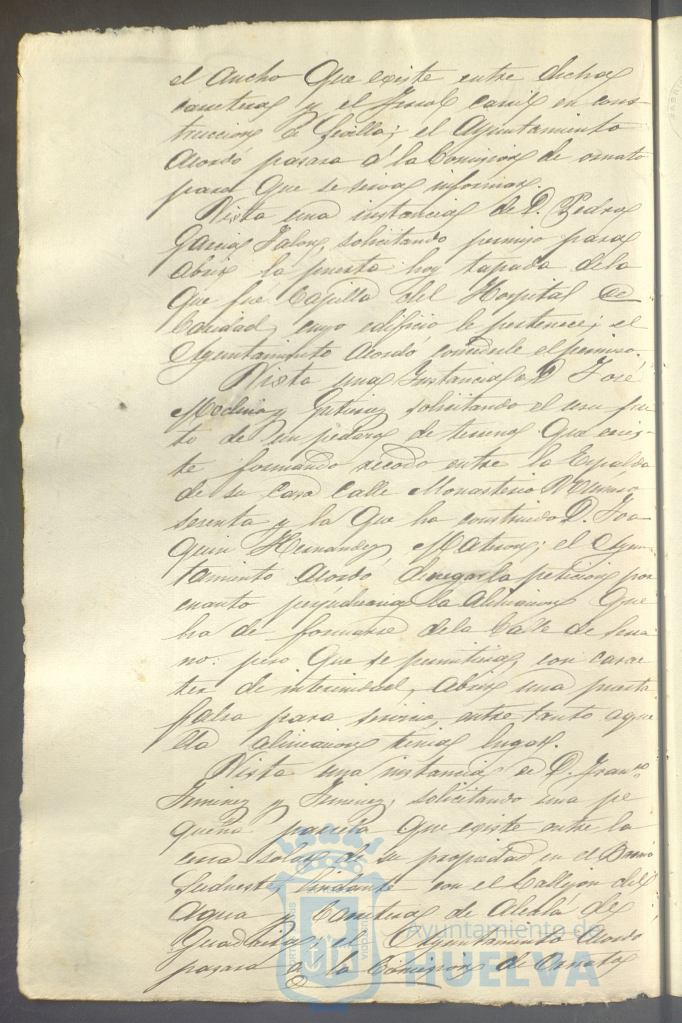 el ancho que existe entre dichas
carreteras y el ferrocarril en cons-
truccion a Sevilla; el Ayuntamiento
acordó pasara á la Comision de ornato
para que se sirva informar.
Vista una instancia de D. Pedro
Garcia Jalon, solicitando permiso para
abrir la puerta hoy tapada de la
que fué Capilla del Hospital de
Caridad, cuyo edificio le pertenece; el
Ayuntamiento acordó concederle el permiso.
Vista una instancia de D. José
Medina y Gutierrez solicitando el usufruc-
to de un pedazo de terreno que exis-
te formando recodo entre la Espalda
de su casa calle Monasterio Número
sesenta y la que ha construido D. Joa-
quin Hernandez Mateos; el Ayun-
tamiento acordó denegar la peticion por
cuanto perjudicaria la alineacion que
ha de formarse de la Calle de
no: pero que se permitiera, con carac-
ter de interinidad, abrir una puerta
falsa para servirse, entre tanto aque-
lla alineacion tenia lugar.
Vista una instancia de D. Franco.
Jimenez y Jimenez, solicitando una pe
queña parcela que existe entre la
casa solar de su propiedad en el Barrio
Sudueste, lindante con el Callejon del
Agua y Carretera de Alcalá de
Guadaira; el Ayuntamiento acordó
pasara á la Comision de Ornato
Ayuntamiento de
HUELVA